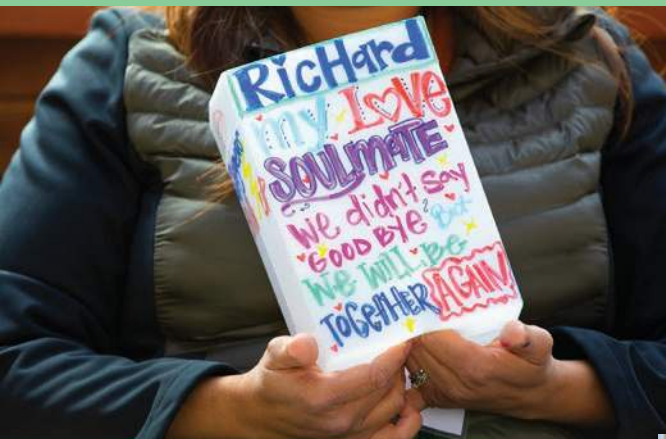 RicHard
my LOVE
SOULMATE
we didn't say
GOOD BYE But
We Will Be
ToGeTHER AGAIN